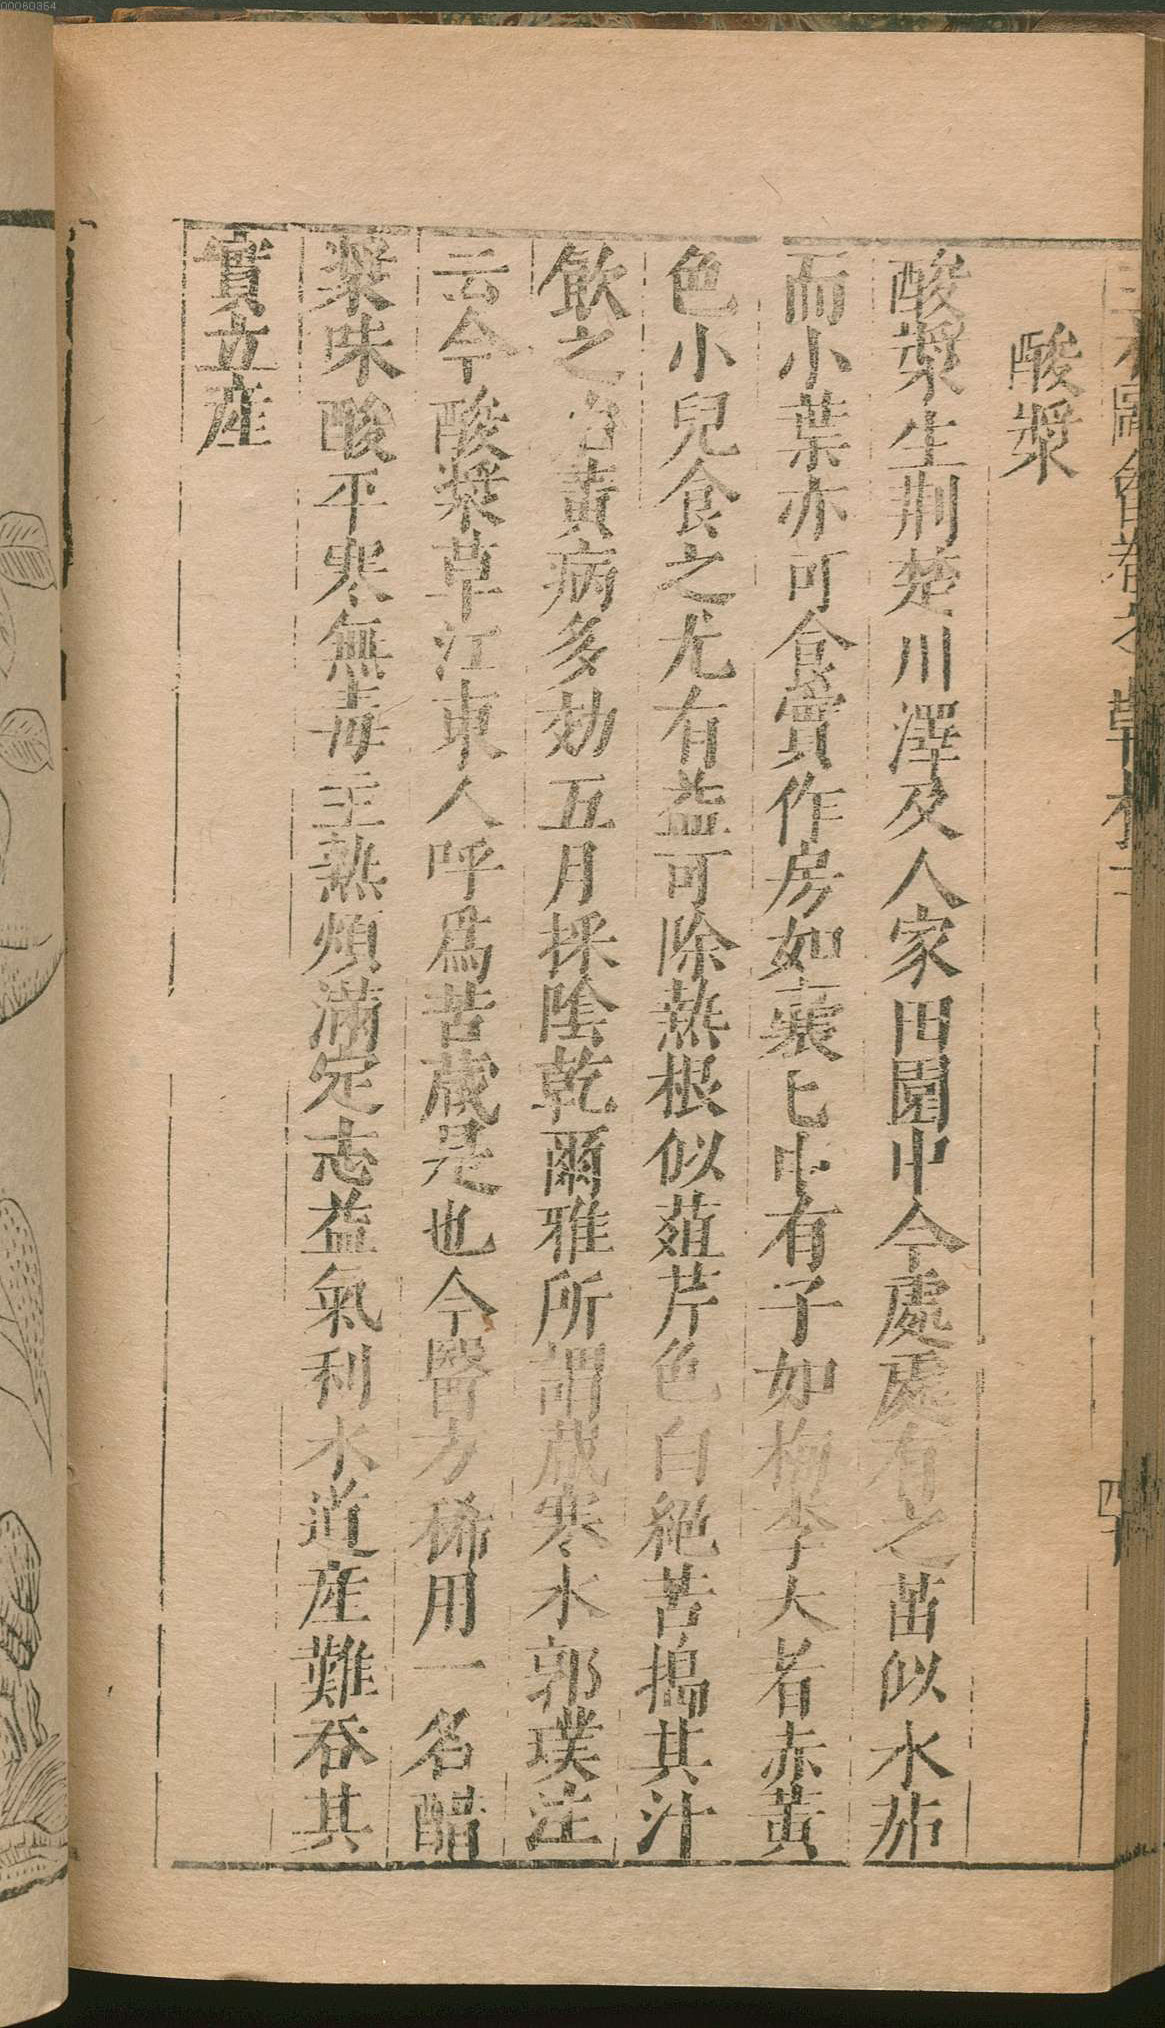 00060354
酸漿
酸漿生荆楚川澤及人家田園中今處處有之苗似水茄
而小葉亦可食實作房如囊匕中有子如梅李大者赤黃
色小兒食之尤有益可除熱根似葅芹色白絕苦搗其汁
飲之治黃病多効五月採陰乾爾雅所謂葴寒水郭璞注
云今酸漿草江東人呼爲苦葴是也今醫方稀用一名醋
漿味酸平寒無毒主熱煩滿定志益氣利水道産難吞其
實立産